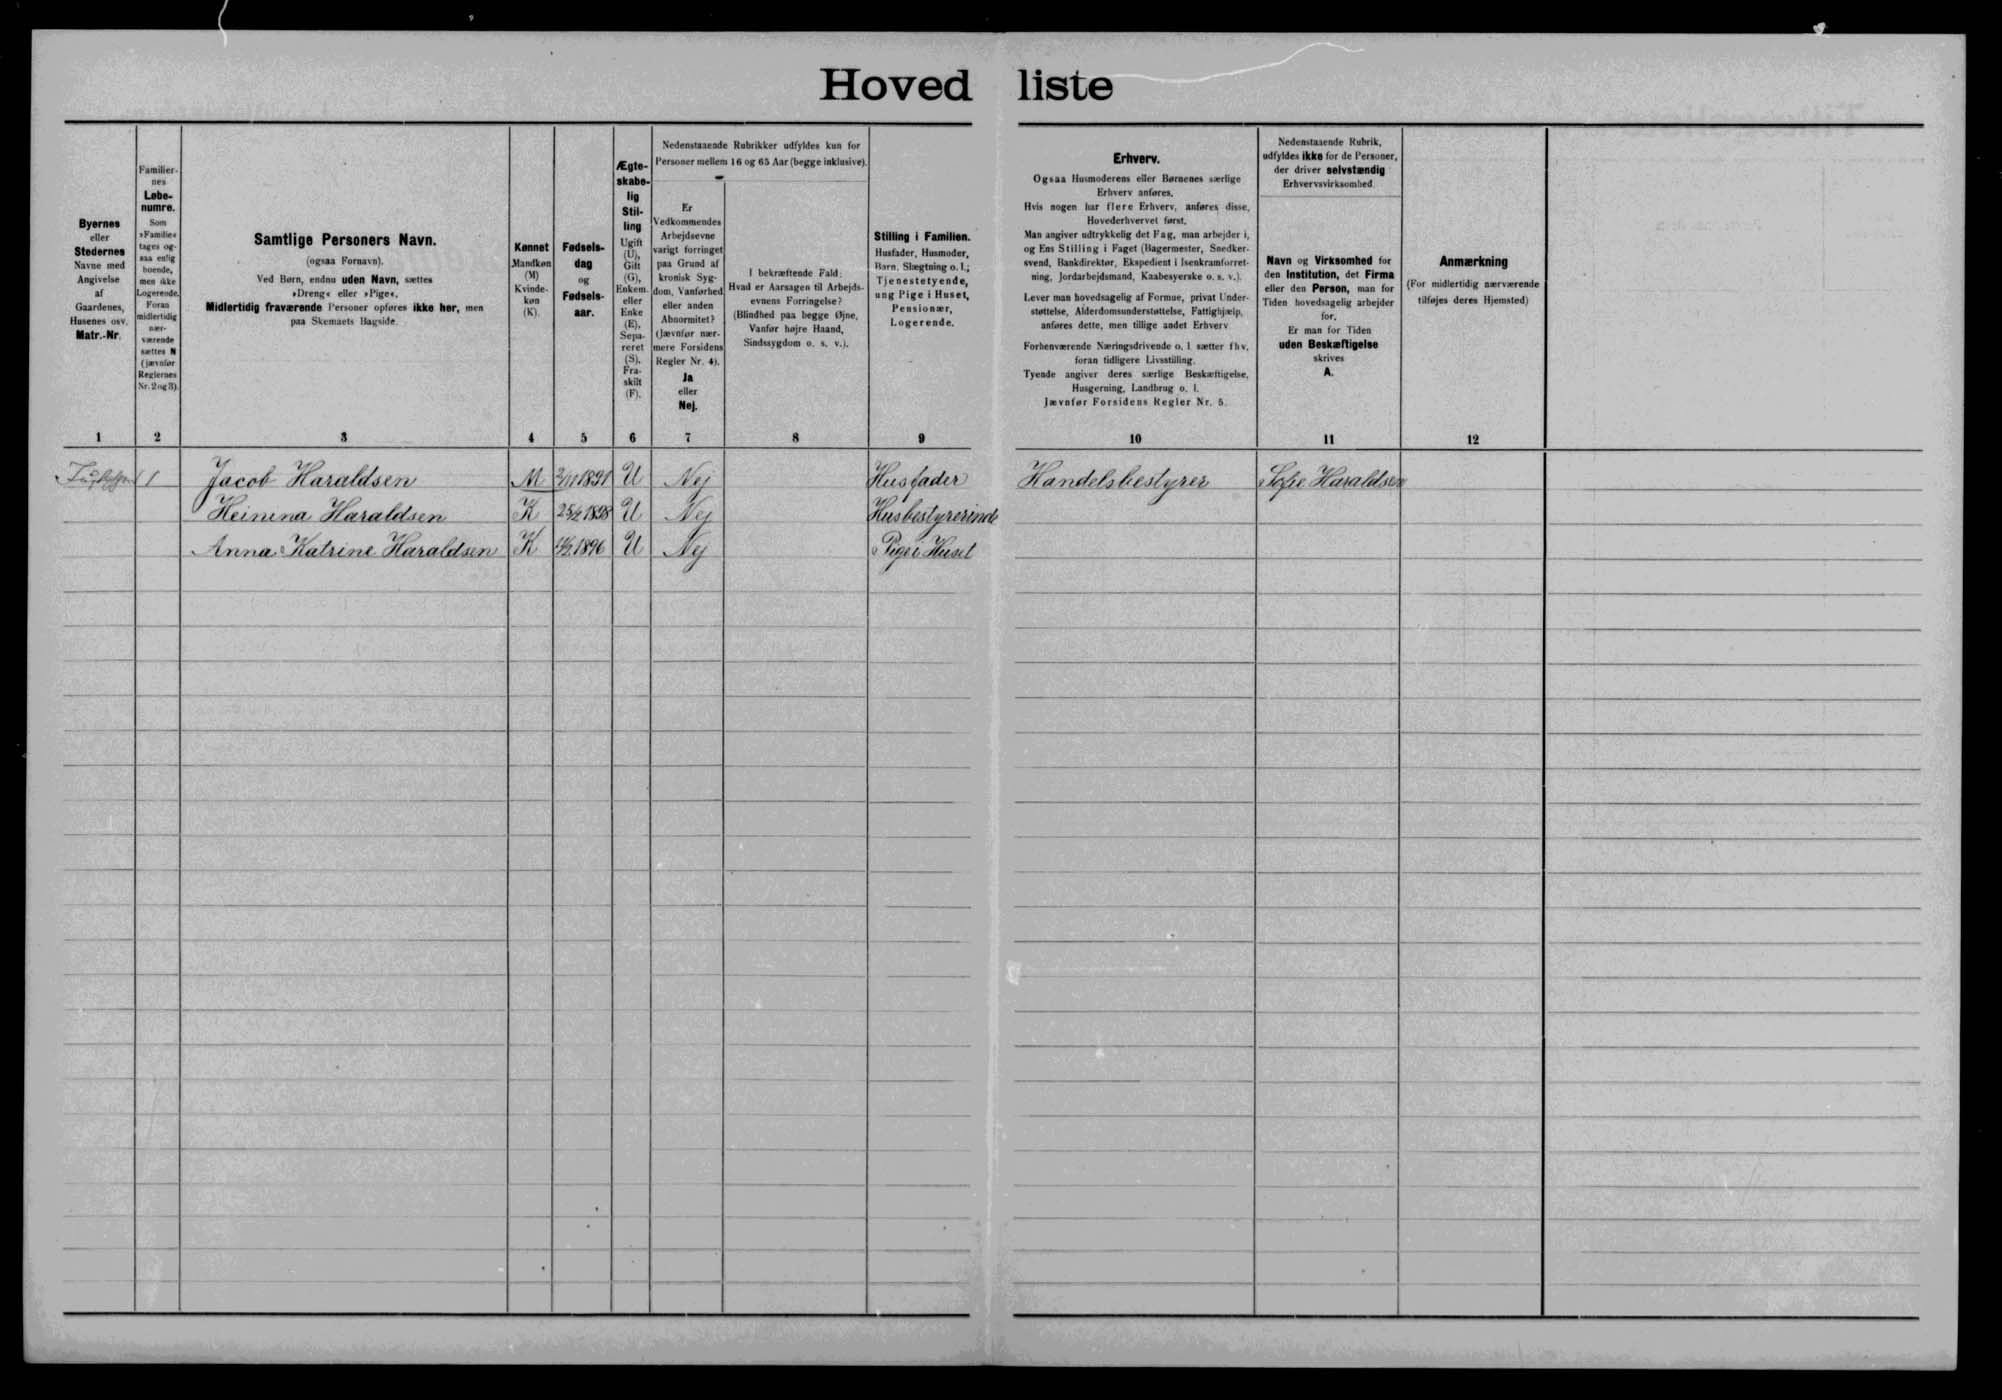 Hovedliste
Byernes
eller
Stedernes
Navne med
Angivelse
af
Gaardenes,
Husenes osv.
Matr.-Nr.
1
Familier-
nes
Løbe-
numre.
Som
»Familie«
tages og-
saa enlig
boende,
men ikke
Logerende.
Foran
midlertidig
nær-
værende
sættes N
(jævnfør
Reglernes
Nr. 2 og 3).
2
Samtlige Personers Navn.
(ogsaa Fornavn).
Ved Børn, endnu uden Navn, sættes
»Dreng« eller »Pige«.
Midlertidig fraværende Personer opføres ikke her, men
paa Skemaets Bagside.
3
Kønnet
Mandkøn
(M)
Kvinde-
køn
(K).
4
Fødsels-
dag
og
Fødsels-
aar.
5
Ægte-
skabe-
lig
Stil-
ling
Ugift
(U),
Gift
(G),
Enkem.
eller
Enke
(E),
Sepa-
reret
(S),
Fra-
skilt
(F).
6
Nedenstaaende Rubrikker udfyldes kun for
Personer mellem 16 og 65 Aar (begge inklusive).
Er
Vedkommendes
Arbejdsevne
varigt forringet
paa Grund af
kronisk Syg-
dom, Vanførhed
eller anden
Abnormitet?
(Jævnfør nær-
mere Forsidens
Regler Nr. 4).
Ja
eller
Nej.
7
I bekræftende Fald:
Hvad er Aarsagen til Arbejds-
evnens Forringelse?
(Blindhed paa begge Øjne,
Vanfør højre Haand,
Sindssygdom o. s. v.).
8
Stilling i Familien.
Husfader, Husmoder,
Barn, Slægtning o. l.;
Tjenestetyende,
ung Pige i Huset,
Pensionær,
Logerende.
9
Erhverv.
Ogsaa Husmoderens eller Børnenes særlige
Erhverv anføres.
Hvis nogen har flere Erhverv, anføres disse,
Hovederhvervet først.
Man angiver udtrykkelig det Fag, man arbejder i,
og Ens Stilling i Faget (Bagermester, Snedker-
svend, Bankdirektør, Ekspedient i Isenkramforret-
ning, Jordarbejdsmand, Kaabesyerske o. s. v.).
Lever man hovedsagelig af Formue, privat Under-
støttelse, Alderdomsunderstøttelse, Fattighjælp,
anføres dette, men tillige andet Erhverv
Forhenværende Næringsdrivende o. l. sætter fhv.
foran tidligere Livsstilling.
Tyende angiver deres særlige Beskæftigelse,
Husgerning, Landbrug o. l.
Jævnfør Forsidens Regler Nr. 5.
10
Nedenstaaende Rubrik,
udfyldes ikke for de Personer,
der driver selvstændig
Erhvervsvirksomhed.
Navn og Virksomhed for
den Institution, det Firma
eller den Person, man for
Tiden hovedsagelig arbejder
for.
Er man for Tiden
uden Beskæftigelse
skrives
A.
11
Anmærkning
(For midlertidig nærværende
tilføjes deres Hjemsted)
12
1 Jacob Haraldsen M 2/11 1891 U Nej Husfader Handelsbestyrer Sofie Haraldsen
Heinina Haraldsen K 1898 U Nej Husbestyrerinde
Anna Katrine Haraldsen K 1896 U Nej Pige i Huset